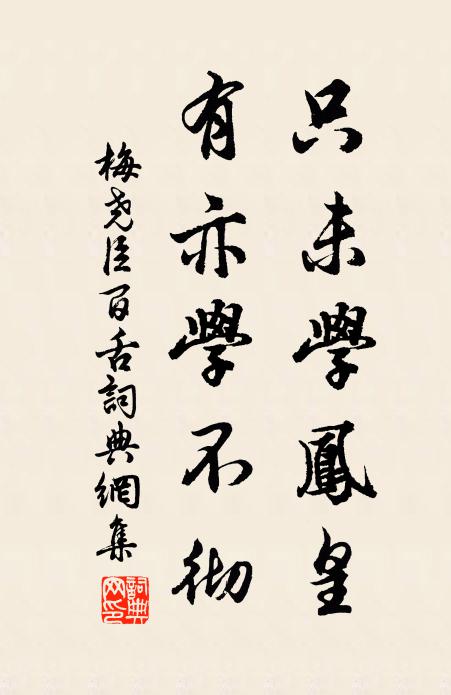 只未學鳳皇
有亦學不彻
梅尧臣百舌詞典網集
詞典网印